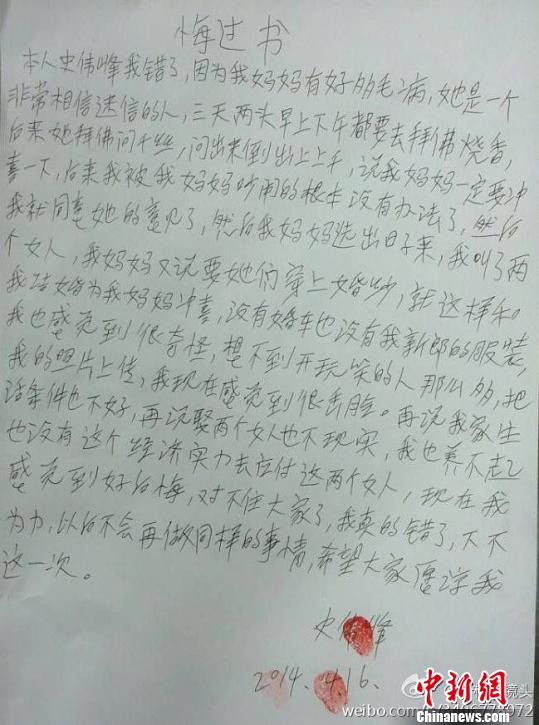 悔过书
本人史伟峰我错了,因为我妈妈有好多毛病,她是一个
非常相信迷信的人,三天两头早上下午都要去拜佛烧香,
后来她拜佛问千丝,问出来倒出上上千,说我妈妈一定要冲
喜一下,后来我被我妈妈吵闹的根本没有办法了,然后
我就同意她的意见了,然后我妈妈选出日子来,我叫了两
个女人,我妈妈又说要她们穿上婚纱,就这样和
我结婚为我妈妈冲喜,没有婚车也没有我新郎的服装,
我也感觉到很奇怪,想不到开玩笑的人那么多,把
我的照片上传,我现在感觉到很丢脸。再说我家生
活条件也不好,再说娶两个女人也不现实,我也养不起
也没有这个经济实力去应付这两个女人,现在我
感觉到好后悔,对不住大家了,我真的错了,下不
为力,以后不会再做同样的事情,希望大家原谅我
这一次。
史伟峰
2014.4.16.
镜头
weibo.com/
中新网
chinanews.com